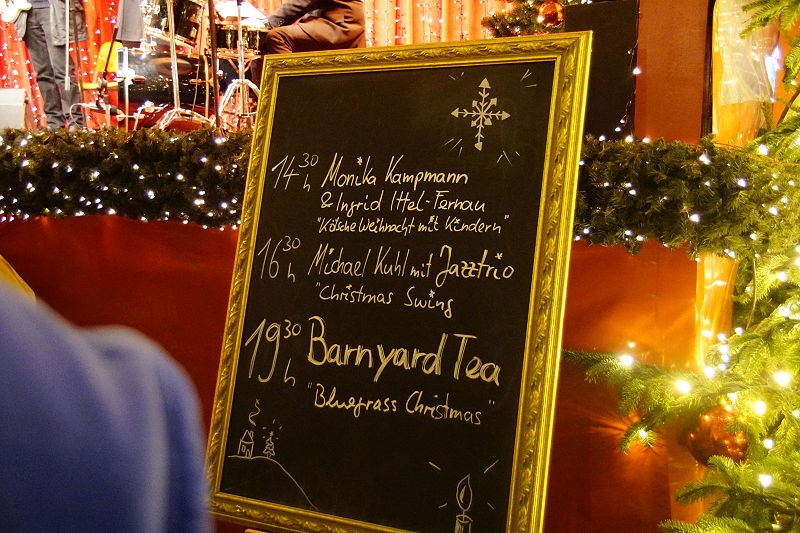 14 30 h Monika Kampmann
& Ingrid Ittel-Fernau
"Kölsche Weihnacht mit Kindern"
16 30 h Michael Kuhl mit Jazztrio
"Christmas Swing
19 30 h Barnyard Tea
"Bluegrass Christmas"